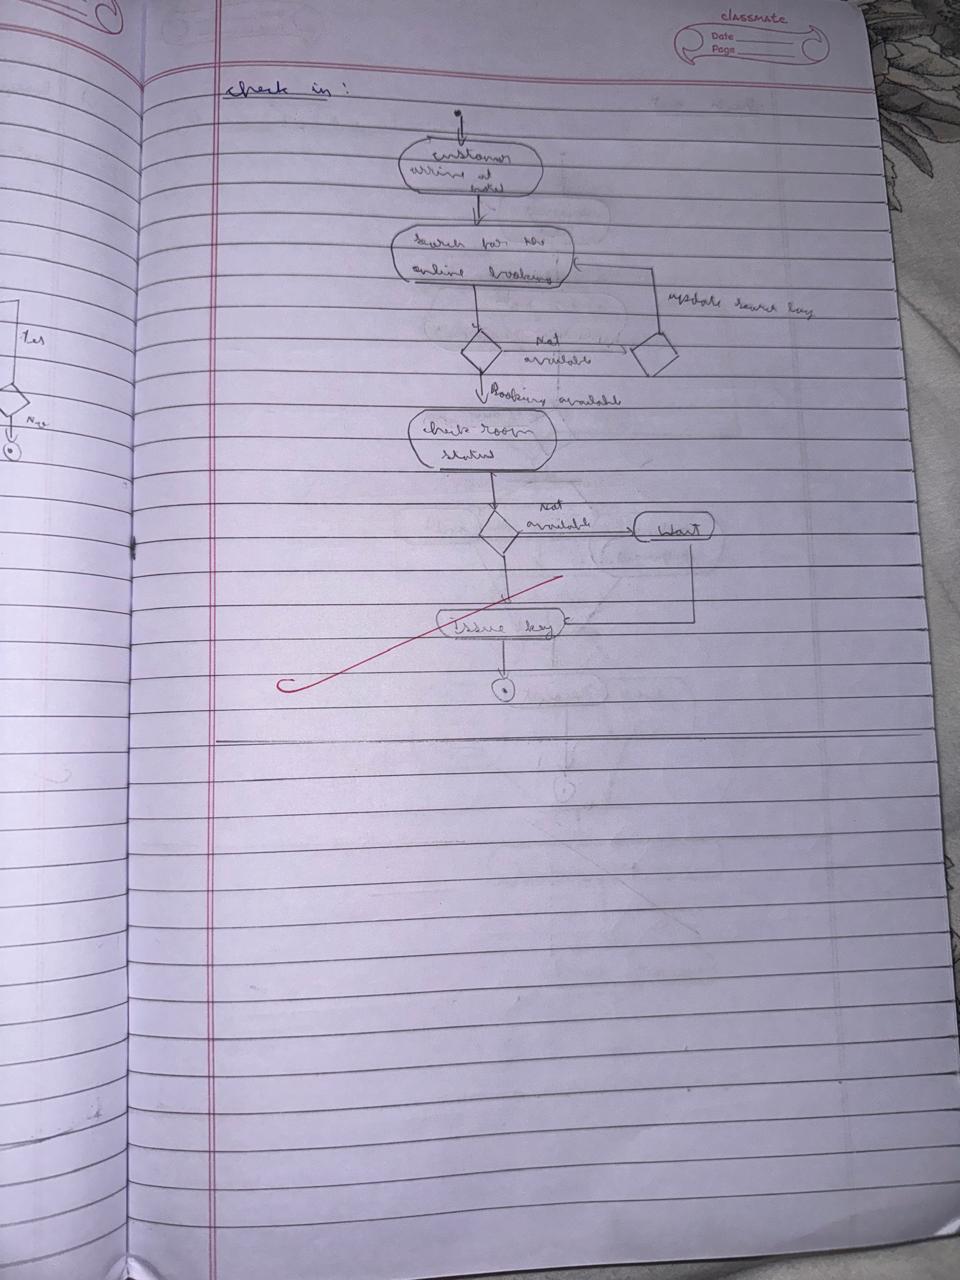 classmate
Date
Page
check in :
customer
arrive at
hotel
search for the
online booking
update search key
Not
available
Booking available
check room
status
Not
available
Wait
Issue key
Yes